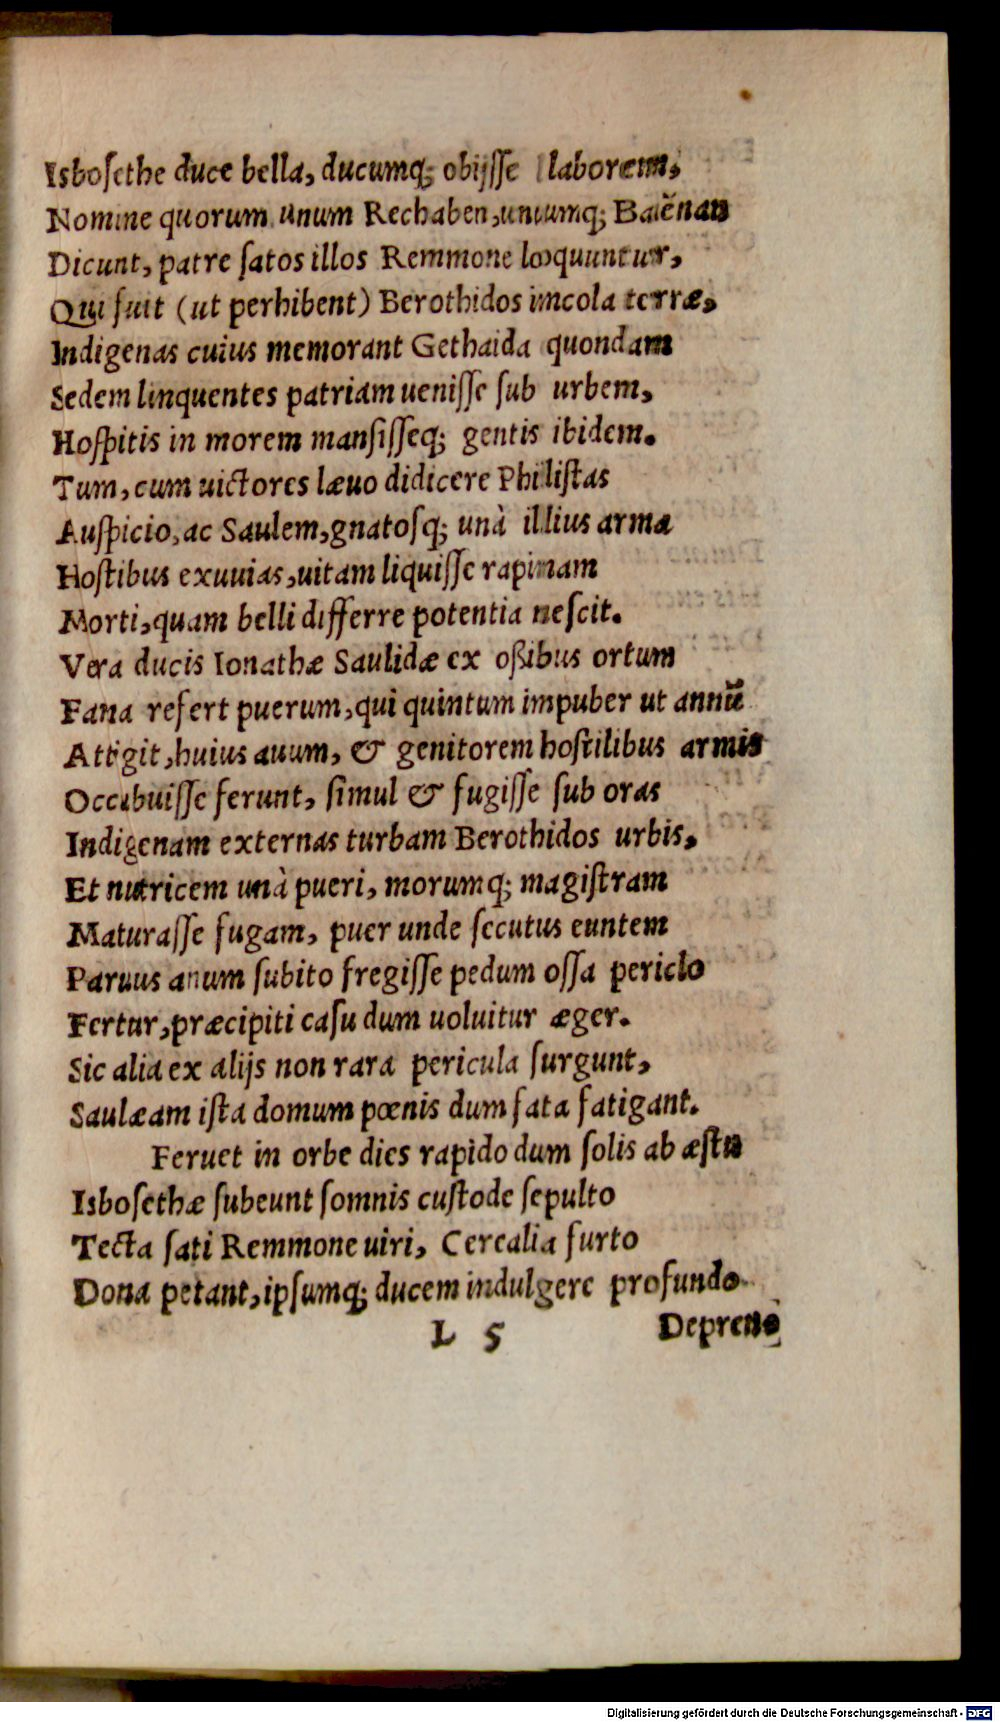 Isboſethe duce bella, ducumq; obijſſe laborem,
Nomine quorum unum Rechaben, unumq; Baiẽnan
Dicunt, patre ſatos illos Remmone loquuntur,
Qui fuit (ut perhibent) Berothidos imcola terræ,
Indigenas cuius memorant Gethaida quondam
Sedem linquentes patriam ueniſſe ſub urbem,
Hoſpitis in morem manſiſſeq; gentis ibidem.
Tum, cum uictores læuo didicere Philiſtas
Auſpicio, ac Saulem, gnatoſq; unà illius arma
Hoſtibus exuuias, uitam liquiſſe rapinam
Morti, quam belli differre potentia neſcit.
Vera ducis Ionathæ Saulidæ ex oßibus ortum
Fana refert puerum, qui quintum impuber ut annũ
Attigit, huius auum, & genitorem hoſtilibus armis
Occubuiſſe ferunt, ſimul & fugiſſe ſub oras
Indigenam externas turbam Berothidos urbis,
Et nutricem unà pueri, morumq; magiſtram
Maturaſſe fugam, puer unde ſecutus euntem
Paruus anum ſubito fregiſſe pedum oſſa periclo
Fertur, præcipiti caſu dum uoluitur æger.
Sic alia ex alijs non rara pericula ſurgunt,
Saulæam iſta domum pœnis dum fata fatigant.
Feruet in orbe dies rapido dum ſolis ab æſtu
Isboſethæ ſubeunt ſomnis cuſtode ſepulto
Tecta ſati Remmone uiri, Cerealia furto
Dona petant, ipſumq; ducem indulgere profundo
L 5 Deprenſ
Digitalisierung gefördert durch die Deutsche Forschungsgemeinschaft - DFG